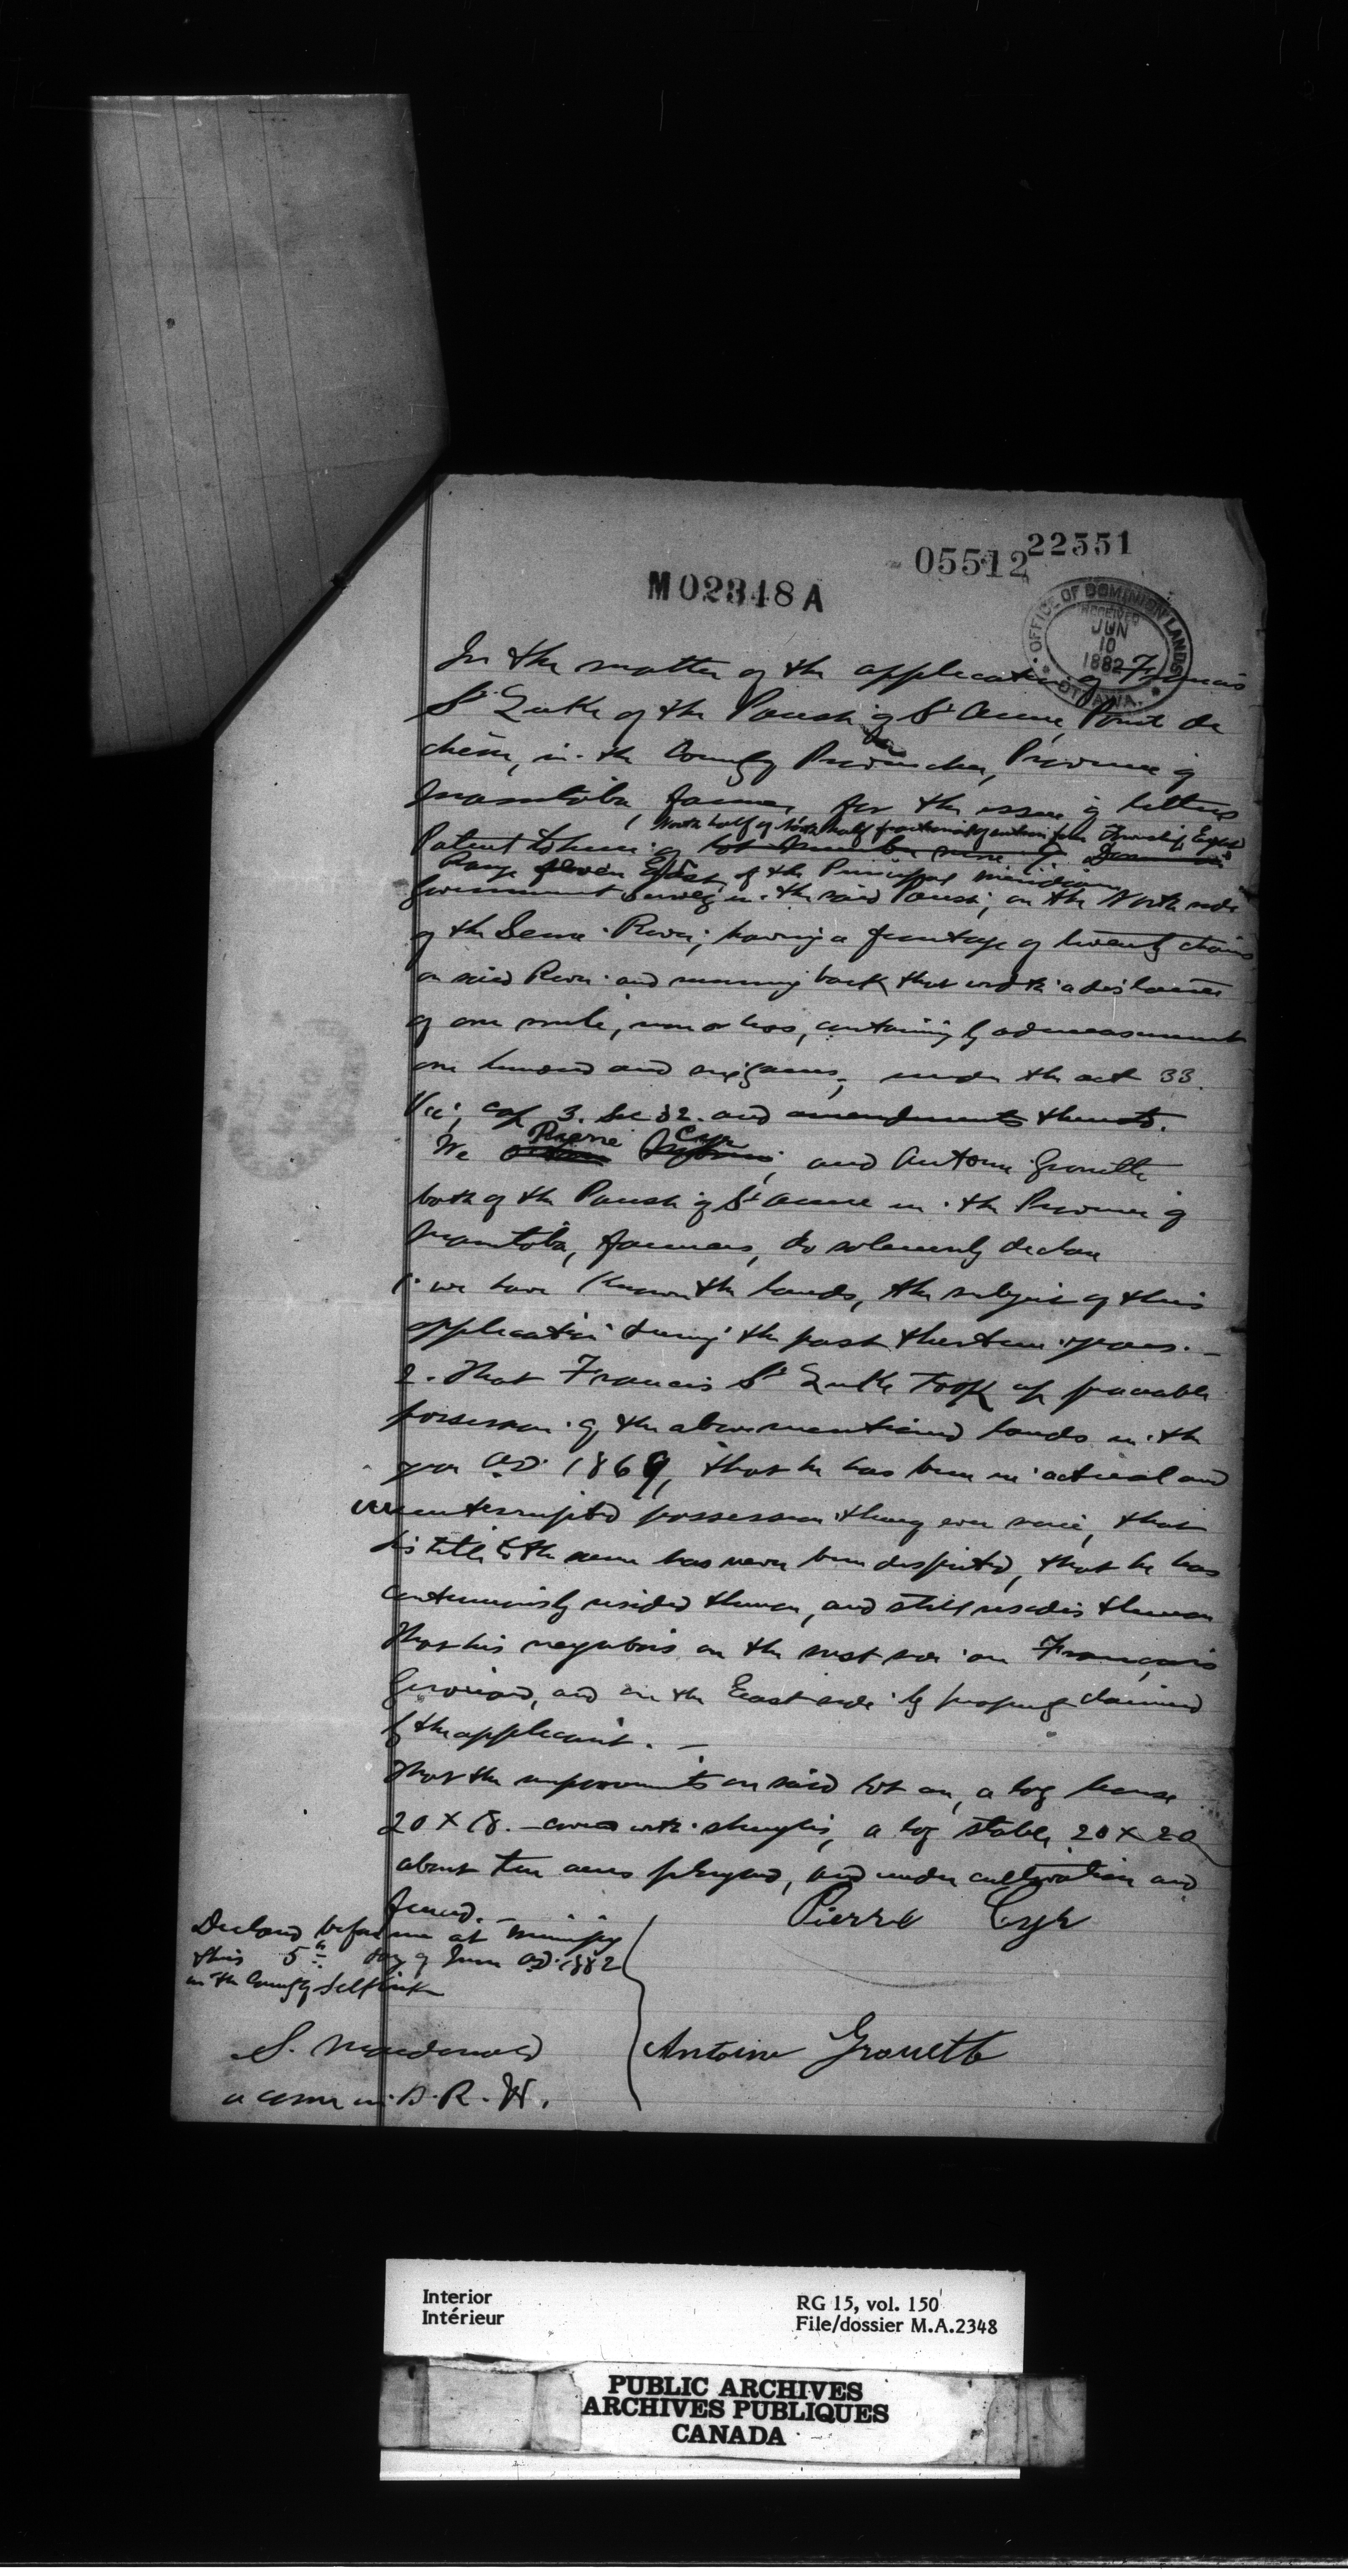 22551
05512
M02348A
OFFICE OF DOMINION LANDS
RECEIVED
JUN
10
1882
OTTAWA.
In the matter of the application of Francis
St Luke of the Parish of St Anne, Point de
chêne, in the County Provencher, Province of
Manitoba, farmer, for the issue of letters
North half of North half fractional section four Township Eight
Patent to him of lot number nine 9. Dominion
Range seven East, of the Principal meridian
Government survey in the said Parish, on the North side
of the Seine River, having a frontage of twenty chains
on said River and running back that width a distance
of one mile, more or less, containing by admeasurement
one hundred and sixty acres, under the act 33.
Vic, cap 3. Sec 32. and amendments thereto.
Pierre Cyr
We and Antoine Grouette
both of the Parish of St Anne in the Province of
Manitoba, farmers, do solemnly declare
1. we have known the lands, the subject of this
application during the past thirteen years. —
2. That Francis St Luke took up peaceable
possession of the above mentioned lands in the
year A.D. 1869, that he has been in actual and
uninterrupted possession thereof ever since, that
his title to the same has never been disputed, that he has
continuously resided thereon, and still resides thereon
That his neighbors on the west side are François
and on the East side by property claimed
by the applicant. —
That the improvements on said lot are, a log house
20 x 18. — covered with shingles, a log stable 20 x 20
about ten acres ploughed, and under cultivation and
fenced. —
Pierre Cyr
Declared before me at Winnipeg
this 5th day of June A.D. 1882
in the County of Selkirk
S. Macdonald
a comr in B. R. &c.
Antoine Grouette
Interior
Intérieur
RG 15, vol. 150
File/dossier M.A.2348
PUBLIC ARCHIVES
ARCHIVES PUBLIQUES
CANADA